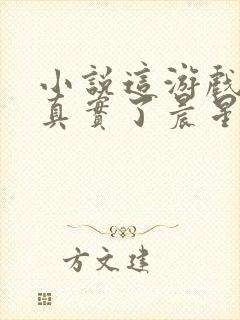 小說這游戲
真實了晨星
方文建